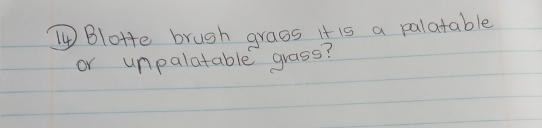 14 Blotte brush grass it is a palatable
or unpalatable grass?